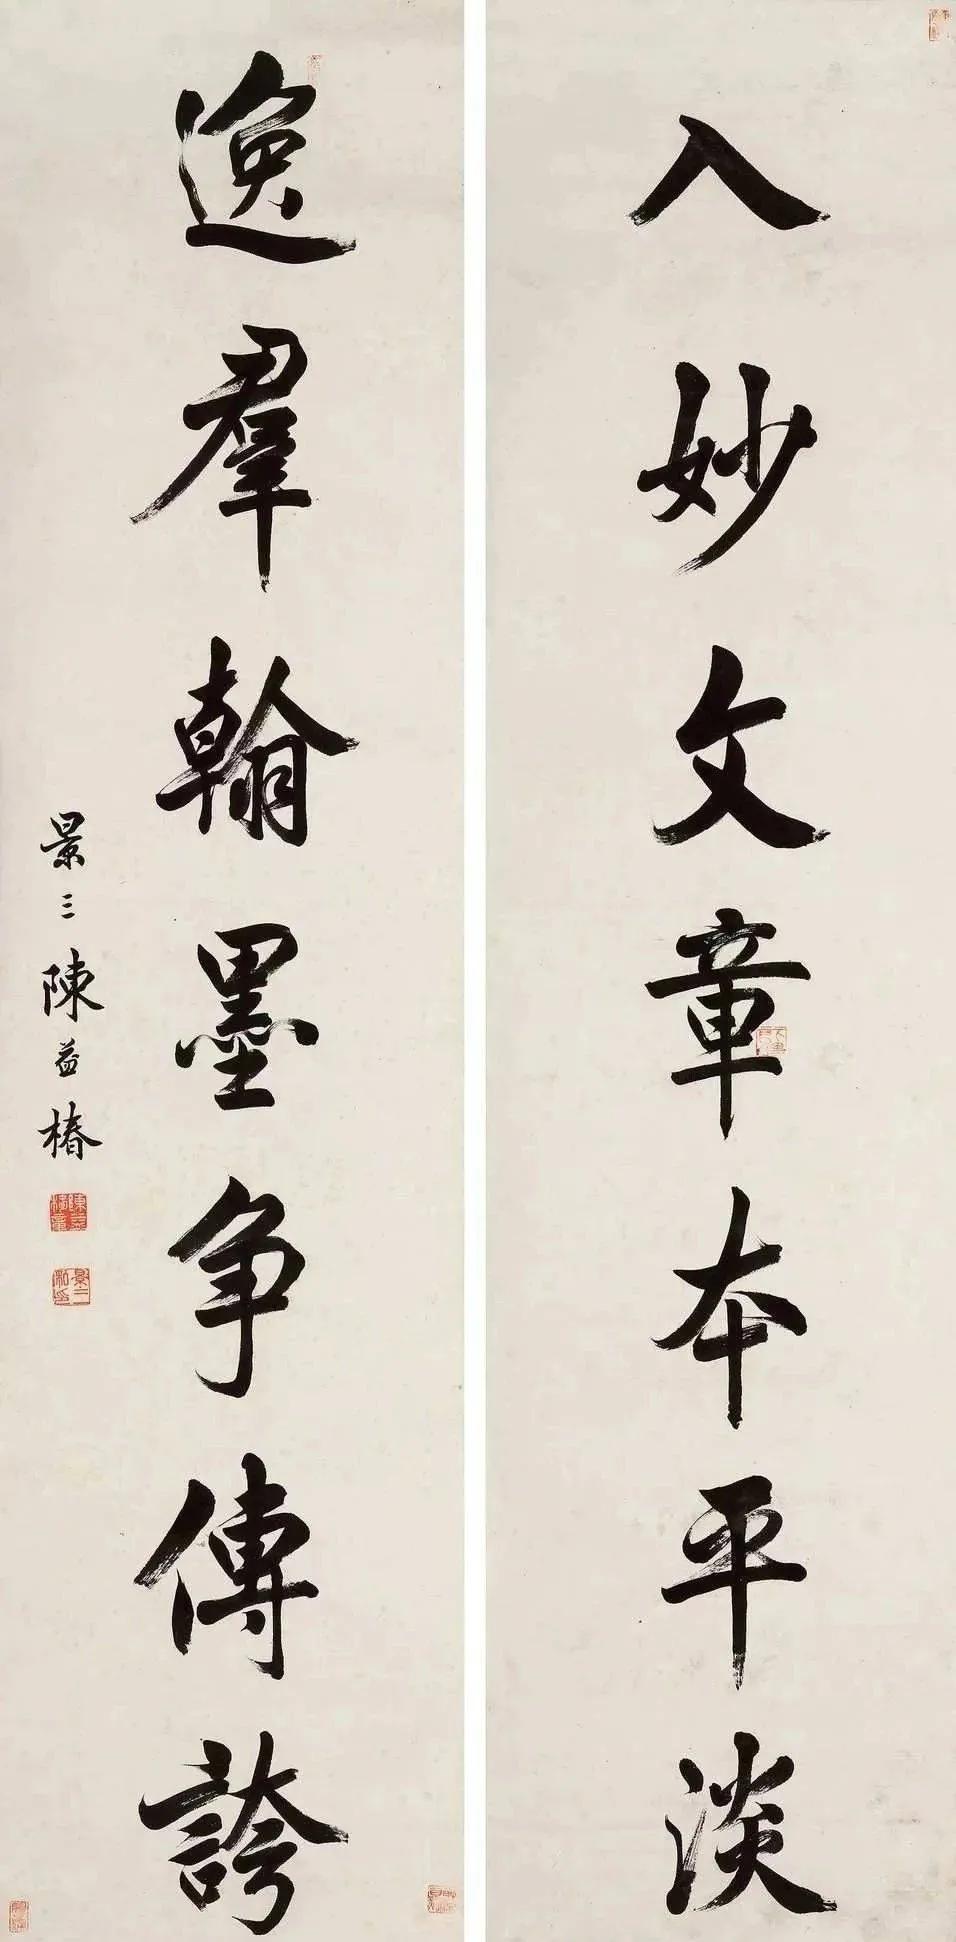 入妙文章本平淡
逸羣翰墨争傳誇
景三陳益椿